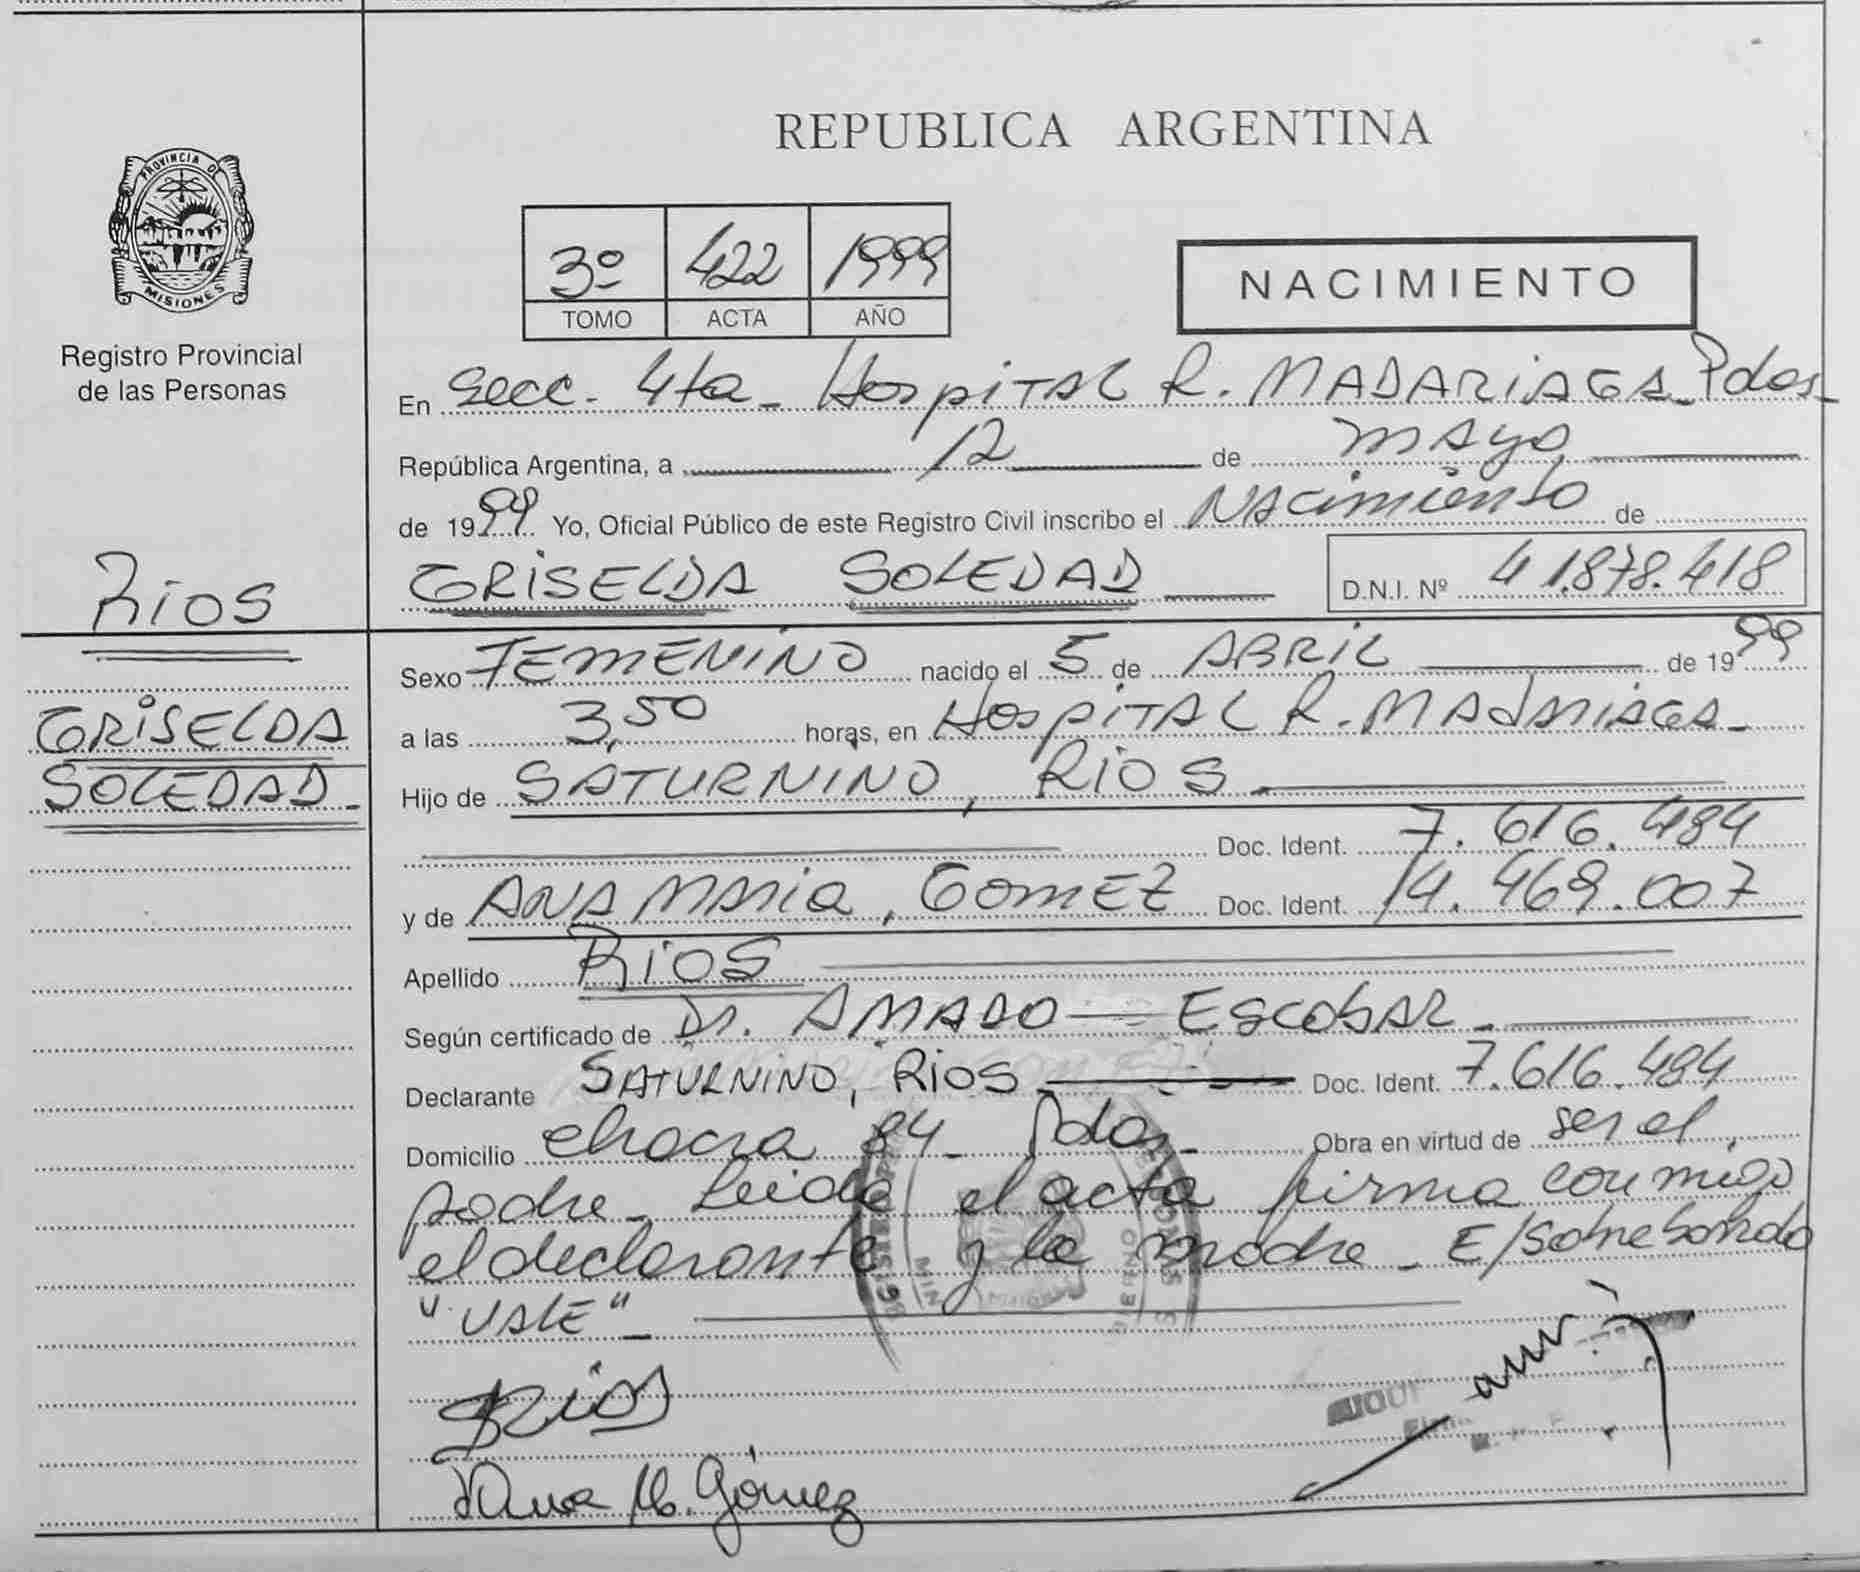 REPUBLICA ARGENTINA
PROVINCIA DE
MISIONES
Registro Provincial
de las Personas
3º 422 1999
TOMO ACTA AÑO
NACIMIENTO
En Secc. 4ta - Hospital R. MADARIAGA - Pdas -
República Argentina, a 12 de mayo
de 1999 Yo, Oficial Público de este Registro Civil inscribo el Nacimiento de
Rios
GRISELDA SOLEDAD D.N.I. Nº 41.878.418
Sexo FEMENINO nacido el 5 de ABRIL de 1999
GRISELDA
SOLEDAD -
a las 3,50 horas, en Hospital R. MADARIAGA -
Hijo de SATURNINO, RIOS
Doc. Ident. 7.616.484
y de ANA MARIA, GOMEZ Doc. Ident. 14.469.007
Apellido RIOS
Según certificado de Dr. AMADO ESCOBAR -
Declarante SATURNINO, RIOS Doc. Ident. 7.616.484
Domicilio chacra 84 - Pdas - Obra en virtud de ser el
padre - Leida el acta firma conmigo
el declarante y la madre - E/Sobreborrado
"VALE" -
Rios
Ana M. Gómez